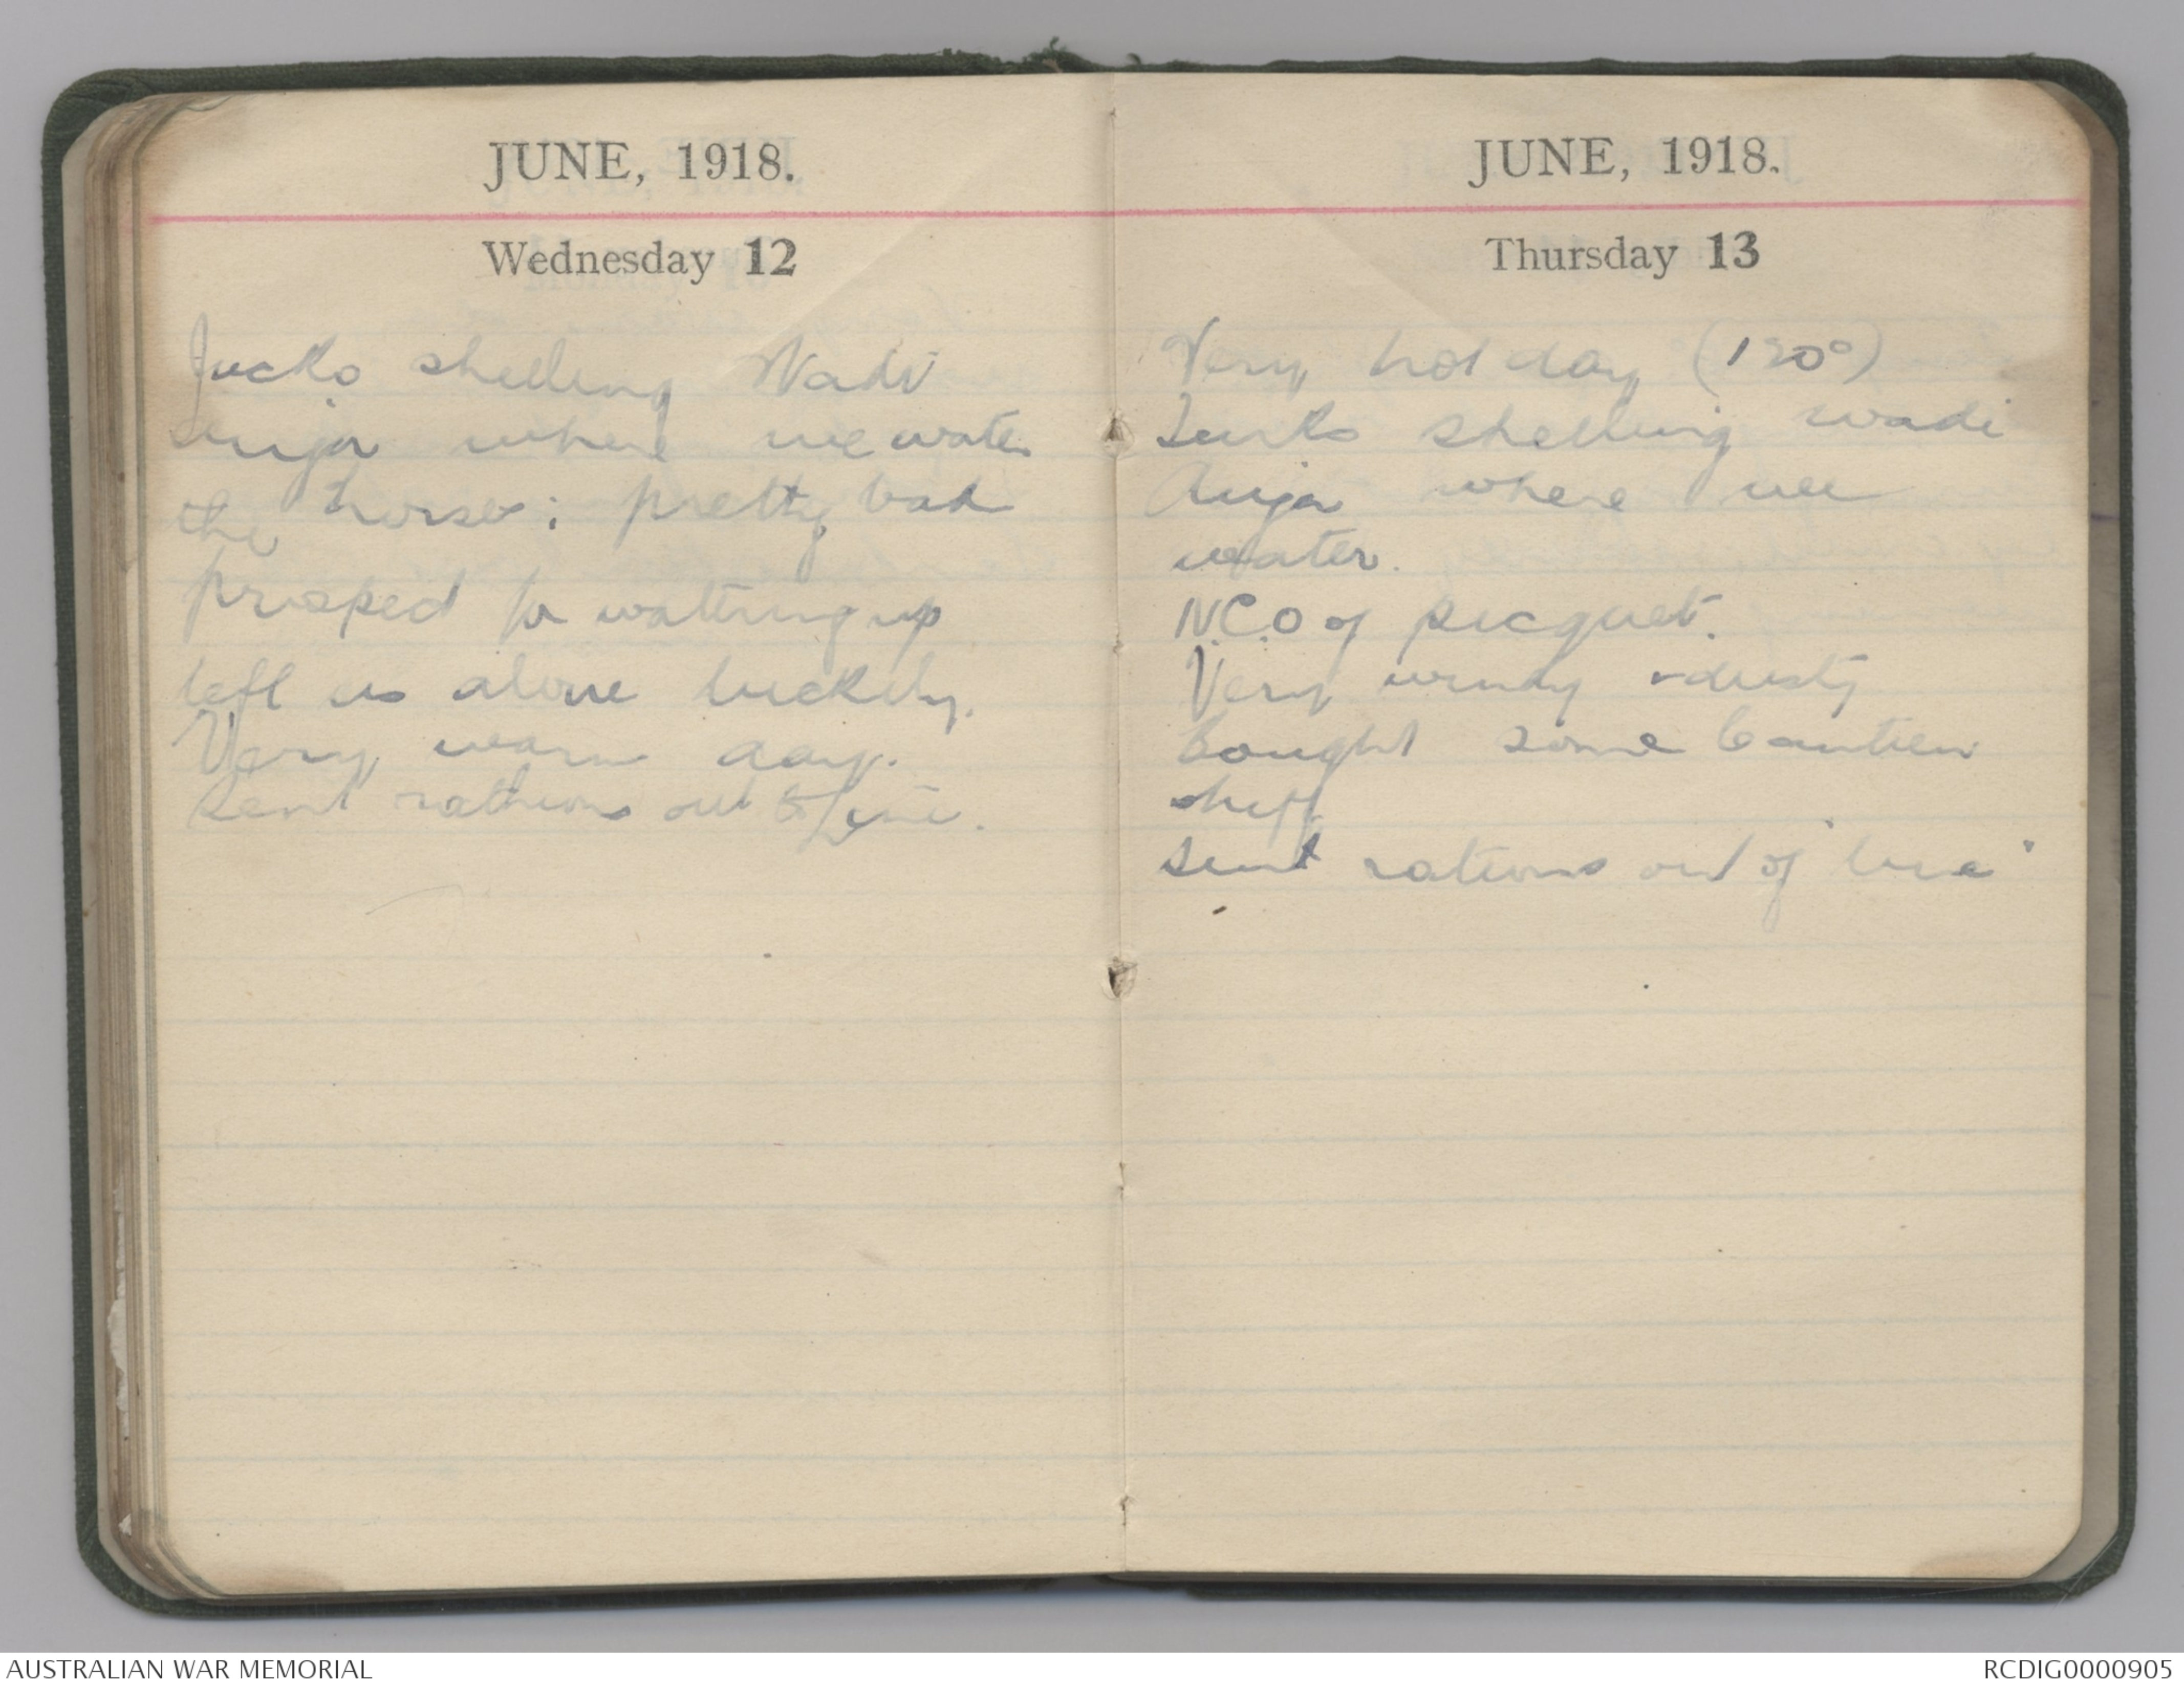 JUNE, 1918.
Wednesday 12
Jacko shelling Wadi
Auja where we water
the horses; pretty bad
prosped for watering up
left us alone luckily.
Very warm day.
Sent rations out to Line.
JUNE, 1918.
Thursday 13
Very hot day (120°)
Turks shelling wadi
Auja where we
water.
N.C.O of picquet.
Very windy & dusty
Bought some Canteen
stuff
Sent rations out of "line"
AUSTRALIAN WAR MEMORIAL
RCDIG0000905